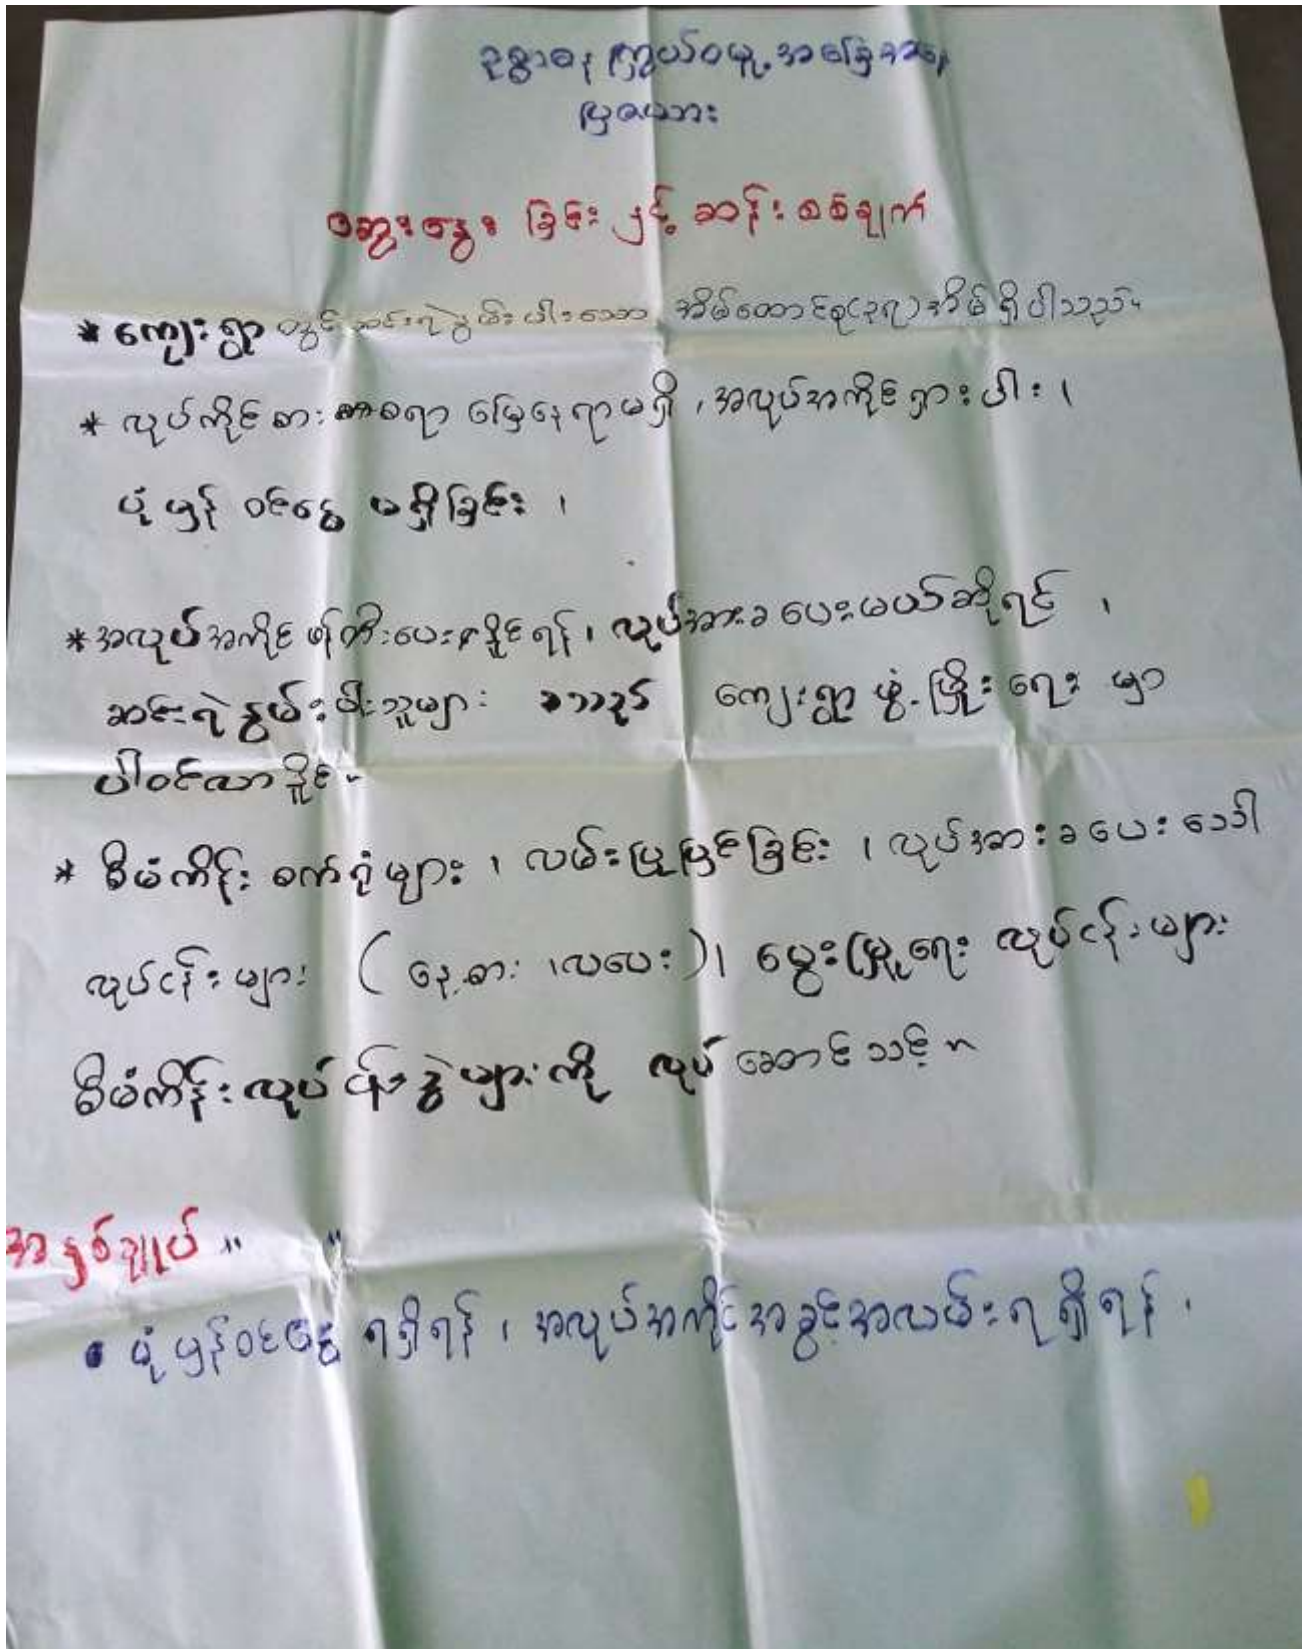 ဥစ္စာဓန ကြွယ်ဝမှု အခြေအနေ
ပြဇယား
ဆွေးနွေး ခြင်း နှင့် ဆန်းစစ်ချက်
* ကျေးရွာ တွင် ဆင်းရဲနွမ်းပါးသော အိမ်ထောင်စု(၃၃) အိမ် ရှိပါသည်။
* လုပ်ကိုင်စားစရာ မြေနေရာမရှိ ၊ အလုပ်အကိုင်ရှားပါး ၊
ပုံမှန် ဝင်ငွေ မရှိခြင်း ၊
* အလုပ်အကိုင် ဖန်တီးပေးနိုင်ရန် ၊ လုပ်အားခ ပေးမယ်ဆိုရင် ၊
ဆင်းရဲနွမ်းပါးသူများ သည် ကျေးရွာ ဖွံ့ဖြိုးရေး မှာ
ပါဝင်လာနိုင်
* စီမံကိန်း စက်ရုံများ ၊ လမ်းပြုပြင်ခြင်း ၊ လုပ်အားခပေးသော
လုပ်ငန်းများ ( နေ့စား ၊ လပေး ) ၊ မွေးမြူရေး လုပ်ငန်းများ
စီမံကိန်းလုပ်ငန်းခွဲများကို လုပ်ဆောင်သင့်။
အနှစ်ချုပ် ။ ။
• ပုံမှန်ဝင်ငွေ ရရှိရန် ၊ အလုပ်အကိုင်အခွင့်အလမ်းရရှိရန် ၊